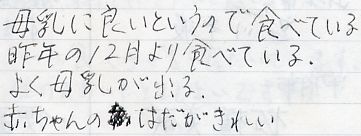 母乳に良いというので食べている
昨年の12月より食べている.
よく母乳が出る.
赤ちゃんのはだがきれい